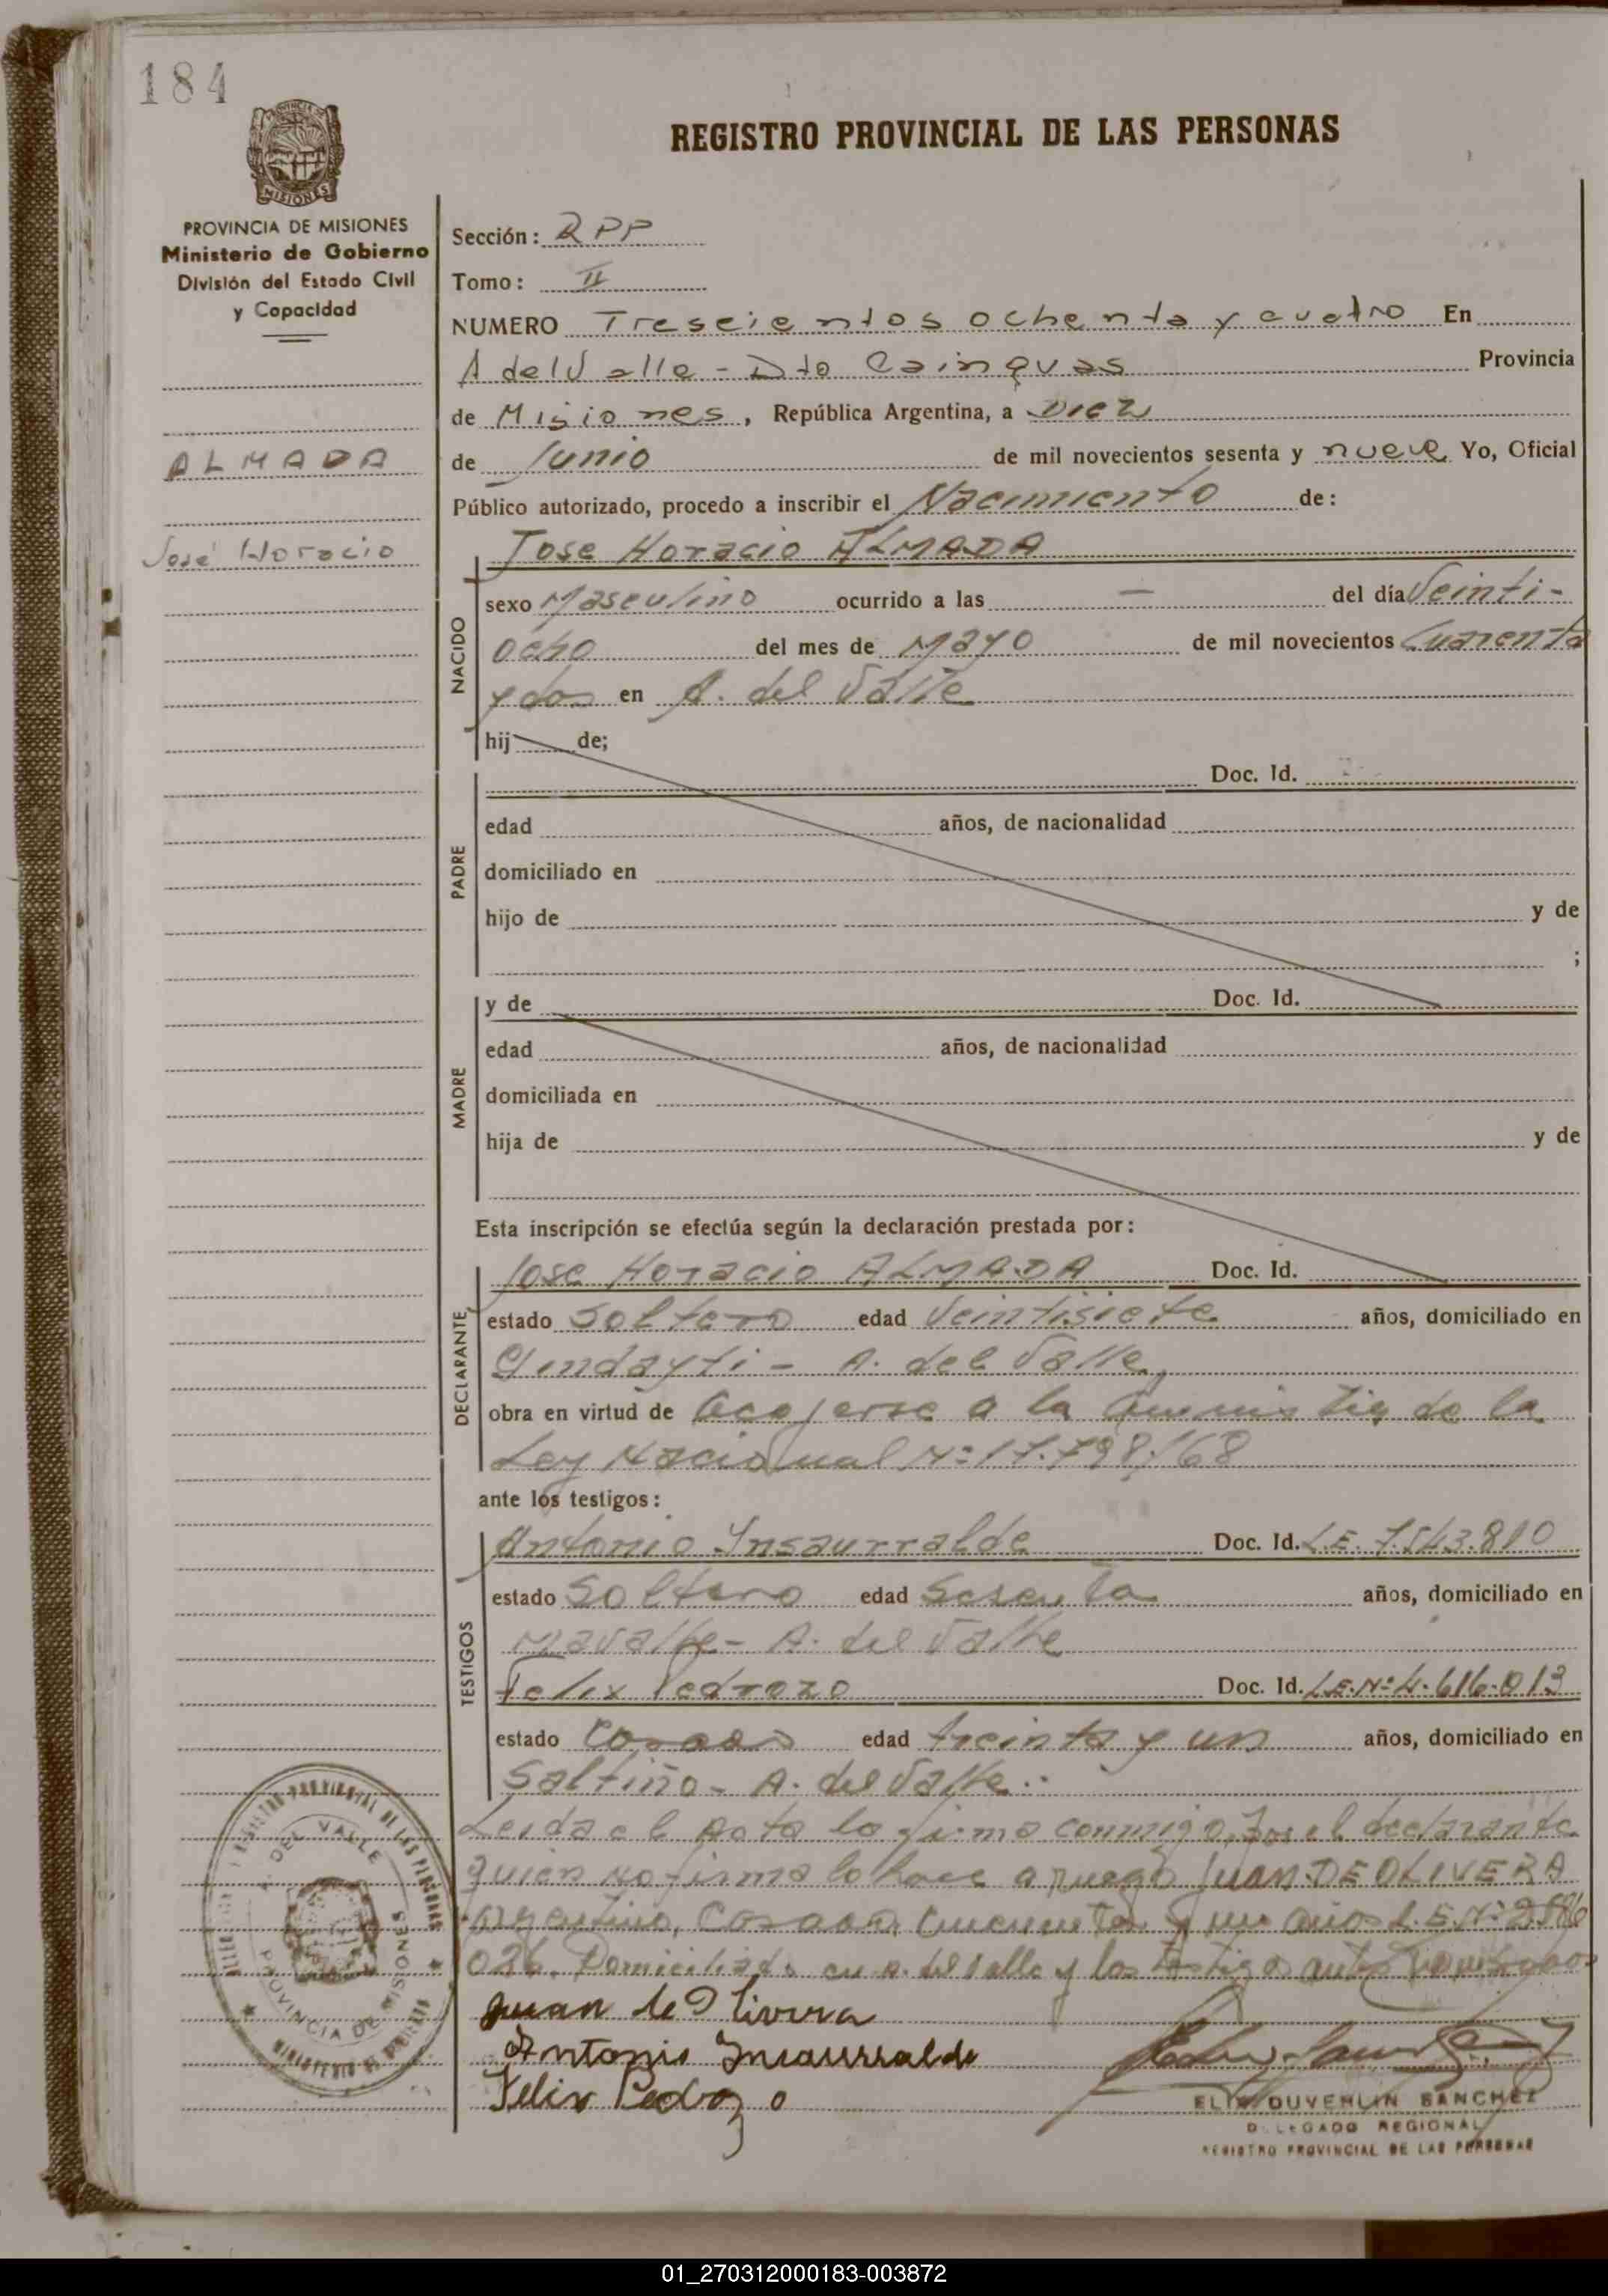 184
PROVINCIA DE MISIONES
Ministerio de Gobierno
División del Estado Civil
y Capacidad
ALMADA
José Horacio
REGISTRO PROVINCIAL DE LAS PERSONAS
Sección: RPP
Tomo: II
NUMERO Trescientos ochenta y cuatro En
A del Valle - Dto Cainguas Provincia
de Misiones, República Argentina, a Diez
de Junio de mil novecientos sesenta y nueve Yo, Oficial
Público autorizado, procedo a inscribir el Nacimiento de:
NACIDO
Jose Horacio ALMADA
sexo Masculino ocurrido a las — del día Veinti-
ocho del mes de Mayo de mil novecientos Cuarenta
y dos en A. del Valle
hij de;
PADRE
Doc. Id.
edad años, de nacionalidad
domiciliado en
hijo de y de
;
MADRE
y de Doc. Id.
edad años, de nacionalidad
domiciliada en
hija de y de
Esta inscripción se efectúa según la declaración prestada por:
DECLARANTE
Jose Horacio ALMADA Doc. Id.
estado Soltero edad Veintisiete años, domiciliado en
A. del Valle
obra en virtud de acojerse a la Amnistia de la
Ley Nacional Nº 17.798/68
ante los testigos:
TESTIGOS
Antonio Ynsaurralde Doc. Id. L.E. 7.543.810
estado Soltero edad Sesenta años, domiciliado en
A. del Valle
Felix Pedrozo Doc. Id. L.E. Nº 4.616.013
estado Casado edad treinta y un años, domiciliado en
Saltiño - A. del Valle.
Leida el Acta la firma conmigo, por el declarante
quien no firma lo hace a ruego JUAN DE OLIVERA
argentino, Casado, Cincuenta y un años L.E. Nº 2586
026. Domiciliado en A. del Valle y los testigos antes
Juan de Olivera
Antonio Insaurralde
Felix Pedrozo
DUVERLIN SANCHEZ
DELEGADO REGIONAL
REGISTRO PROVINCIAL DE LAS PERSONAS
REGISTRO PROVINCIAL DE LAS PERSONAS
A. DEL VALLE
PROVINCIA DE MISIONES
01_270312000183-003872